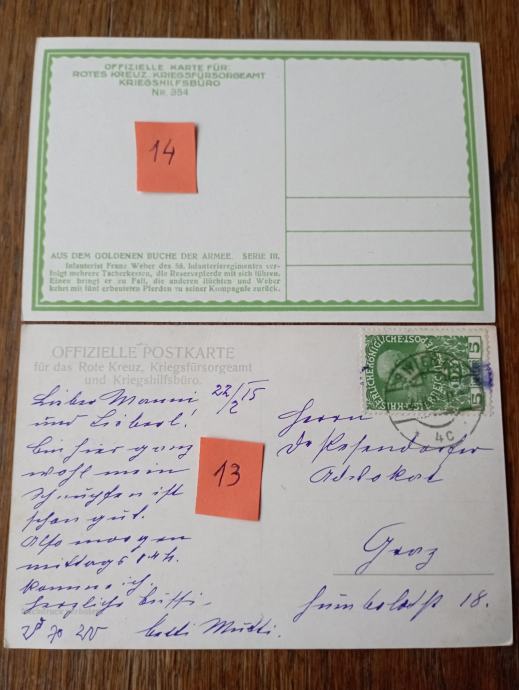 OFFIZIELLE KARTE FÜR:
ROTES KREUZ, KRIEGSFÜRSORGEAMT
KRIEGSHILFSBÜRO
Nr. 354
14
AUS DEM GOLDENEN BUCHE DER ARMEE. SERIE III.
Infanterist Franz Weber des 58. Infanterieregimentes ver-
folgt mehrere Tscherkessen, die Reservepferde mit sich führen.
Einen bringt er zu Fall, die anderen flüchten und Weber
kehrt mit fünf erbeuteten Pferden zu seiner Kompagnie zurück.
OFFIZIELLE POSTKARTE
für das Rote Kreuz, Kriegsfürsorgeamt
und Kriegshilfsbüro.
22/2 15
Lieber Manni
und Lieberl!
bin hier ganz
wohl mein
Schnupfen ist
schon gut.
Also morgen
mittags
komme ich.
herzliche Bussi
Mutti.
13
Herrn
Dr
Advokat
Graz
Humboldtst 18.
KAISERLICHE KÖNIGLICHE
5
5
WIEN
4C